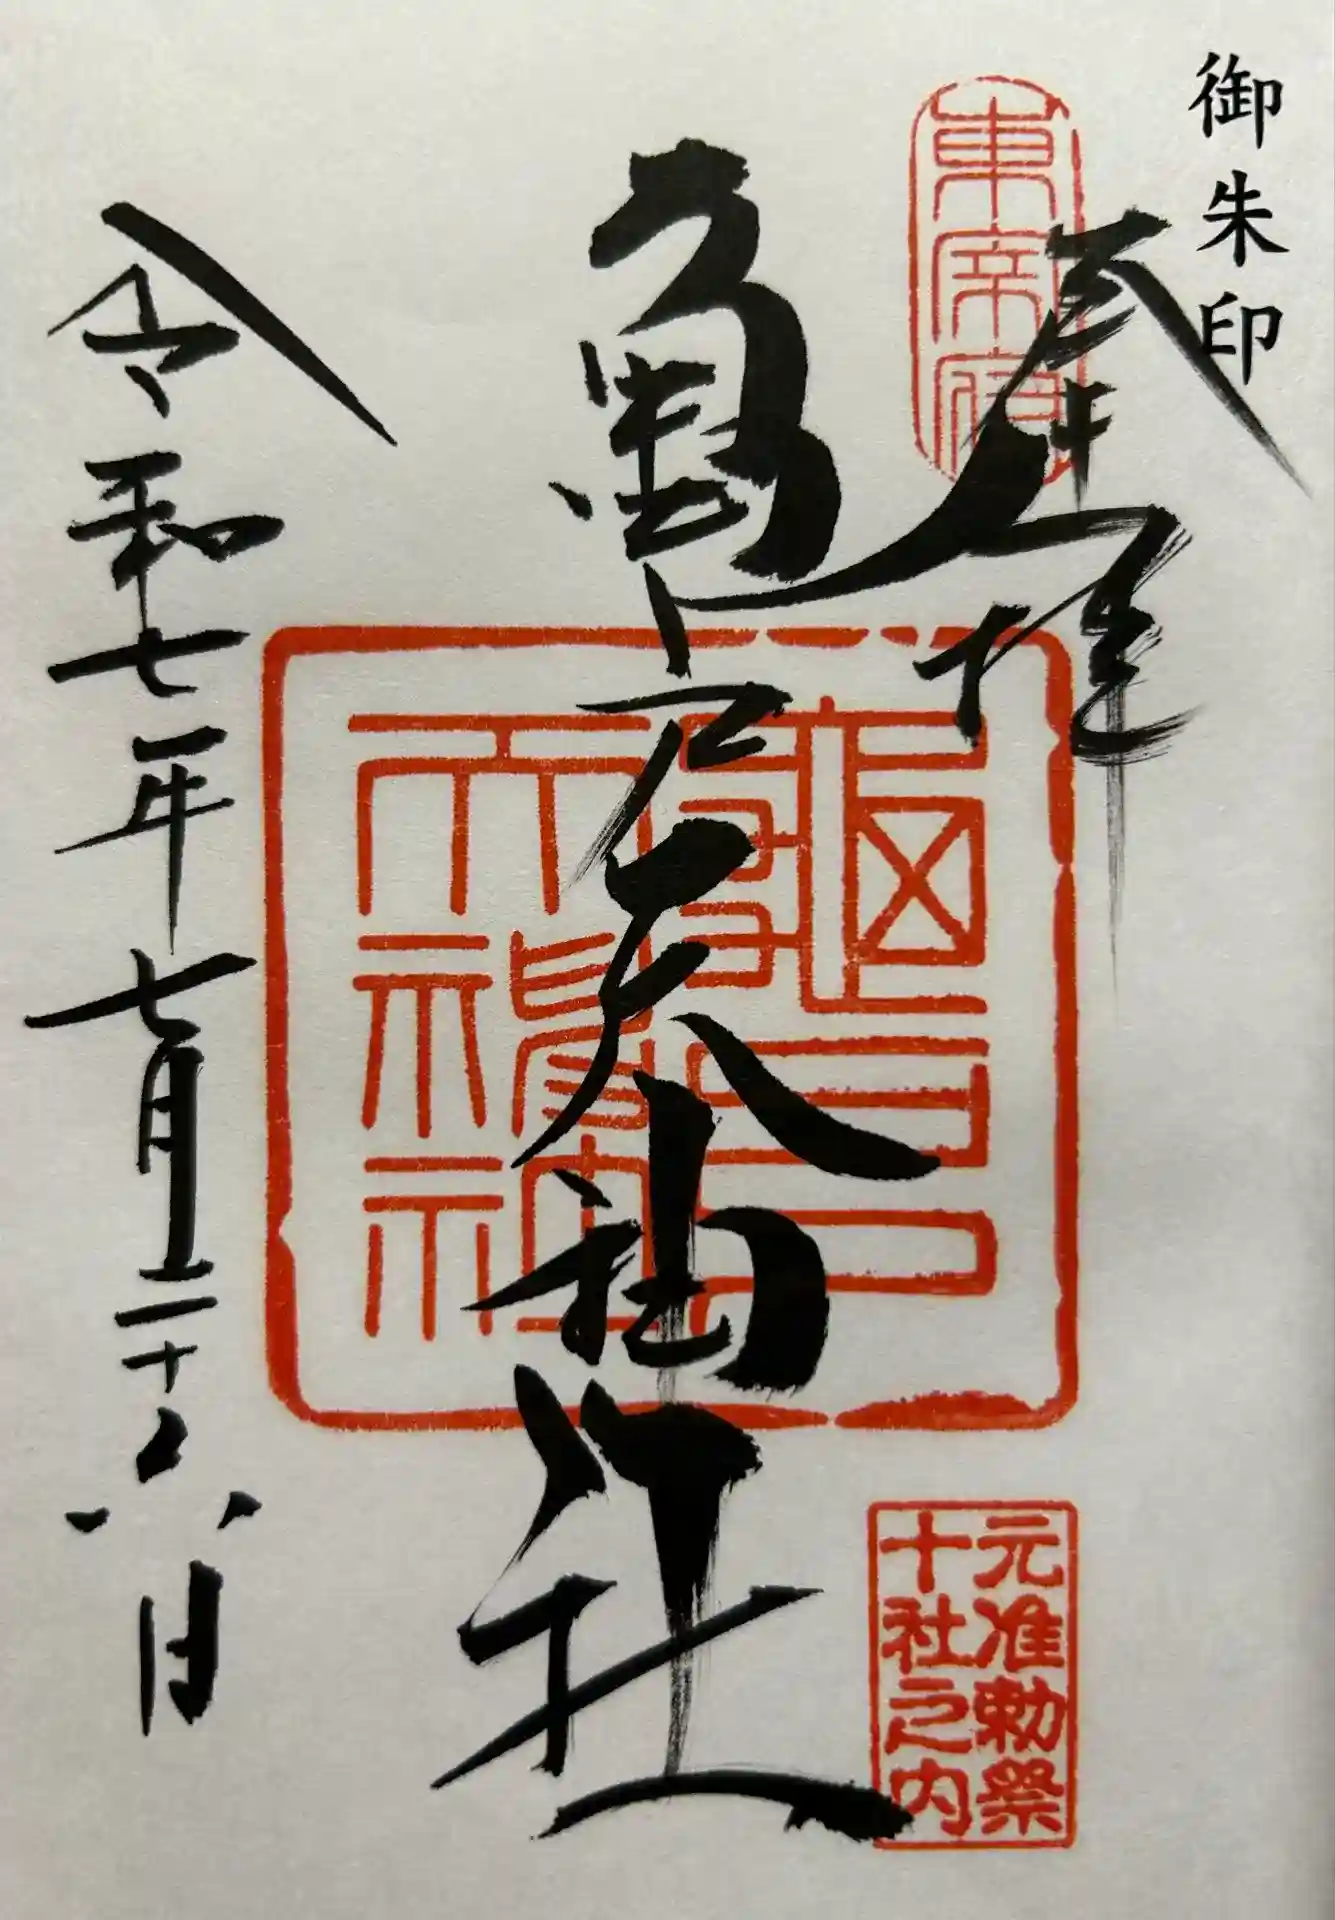 御朱印
奉拝
東宰府
亀戸天神社
龜戸
天神社
元准勅祭
十社之内
令和七年七月二十六日